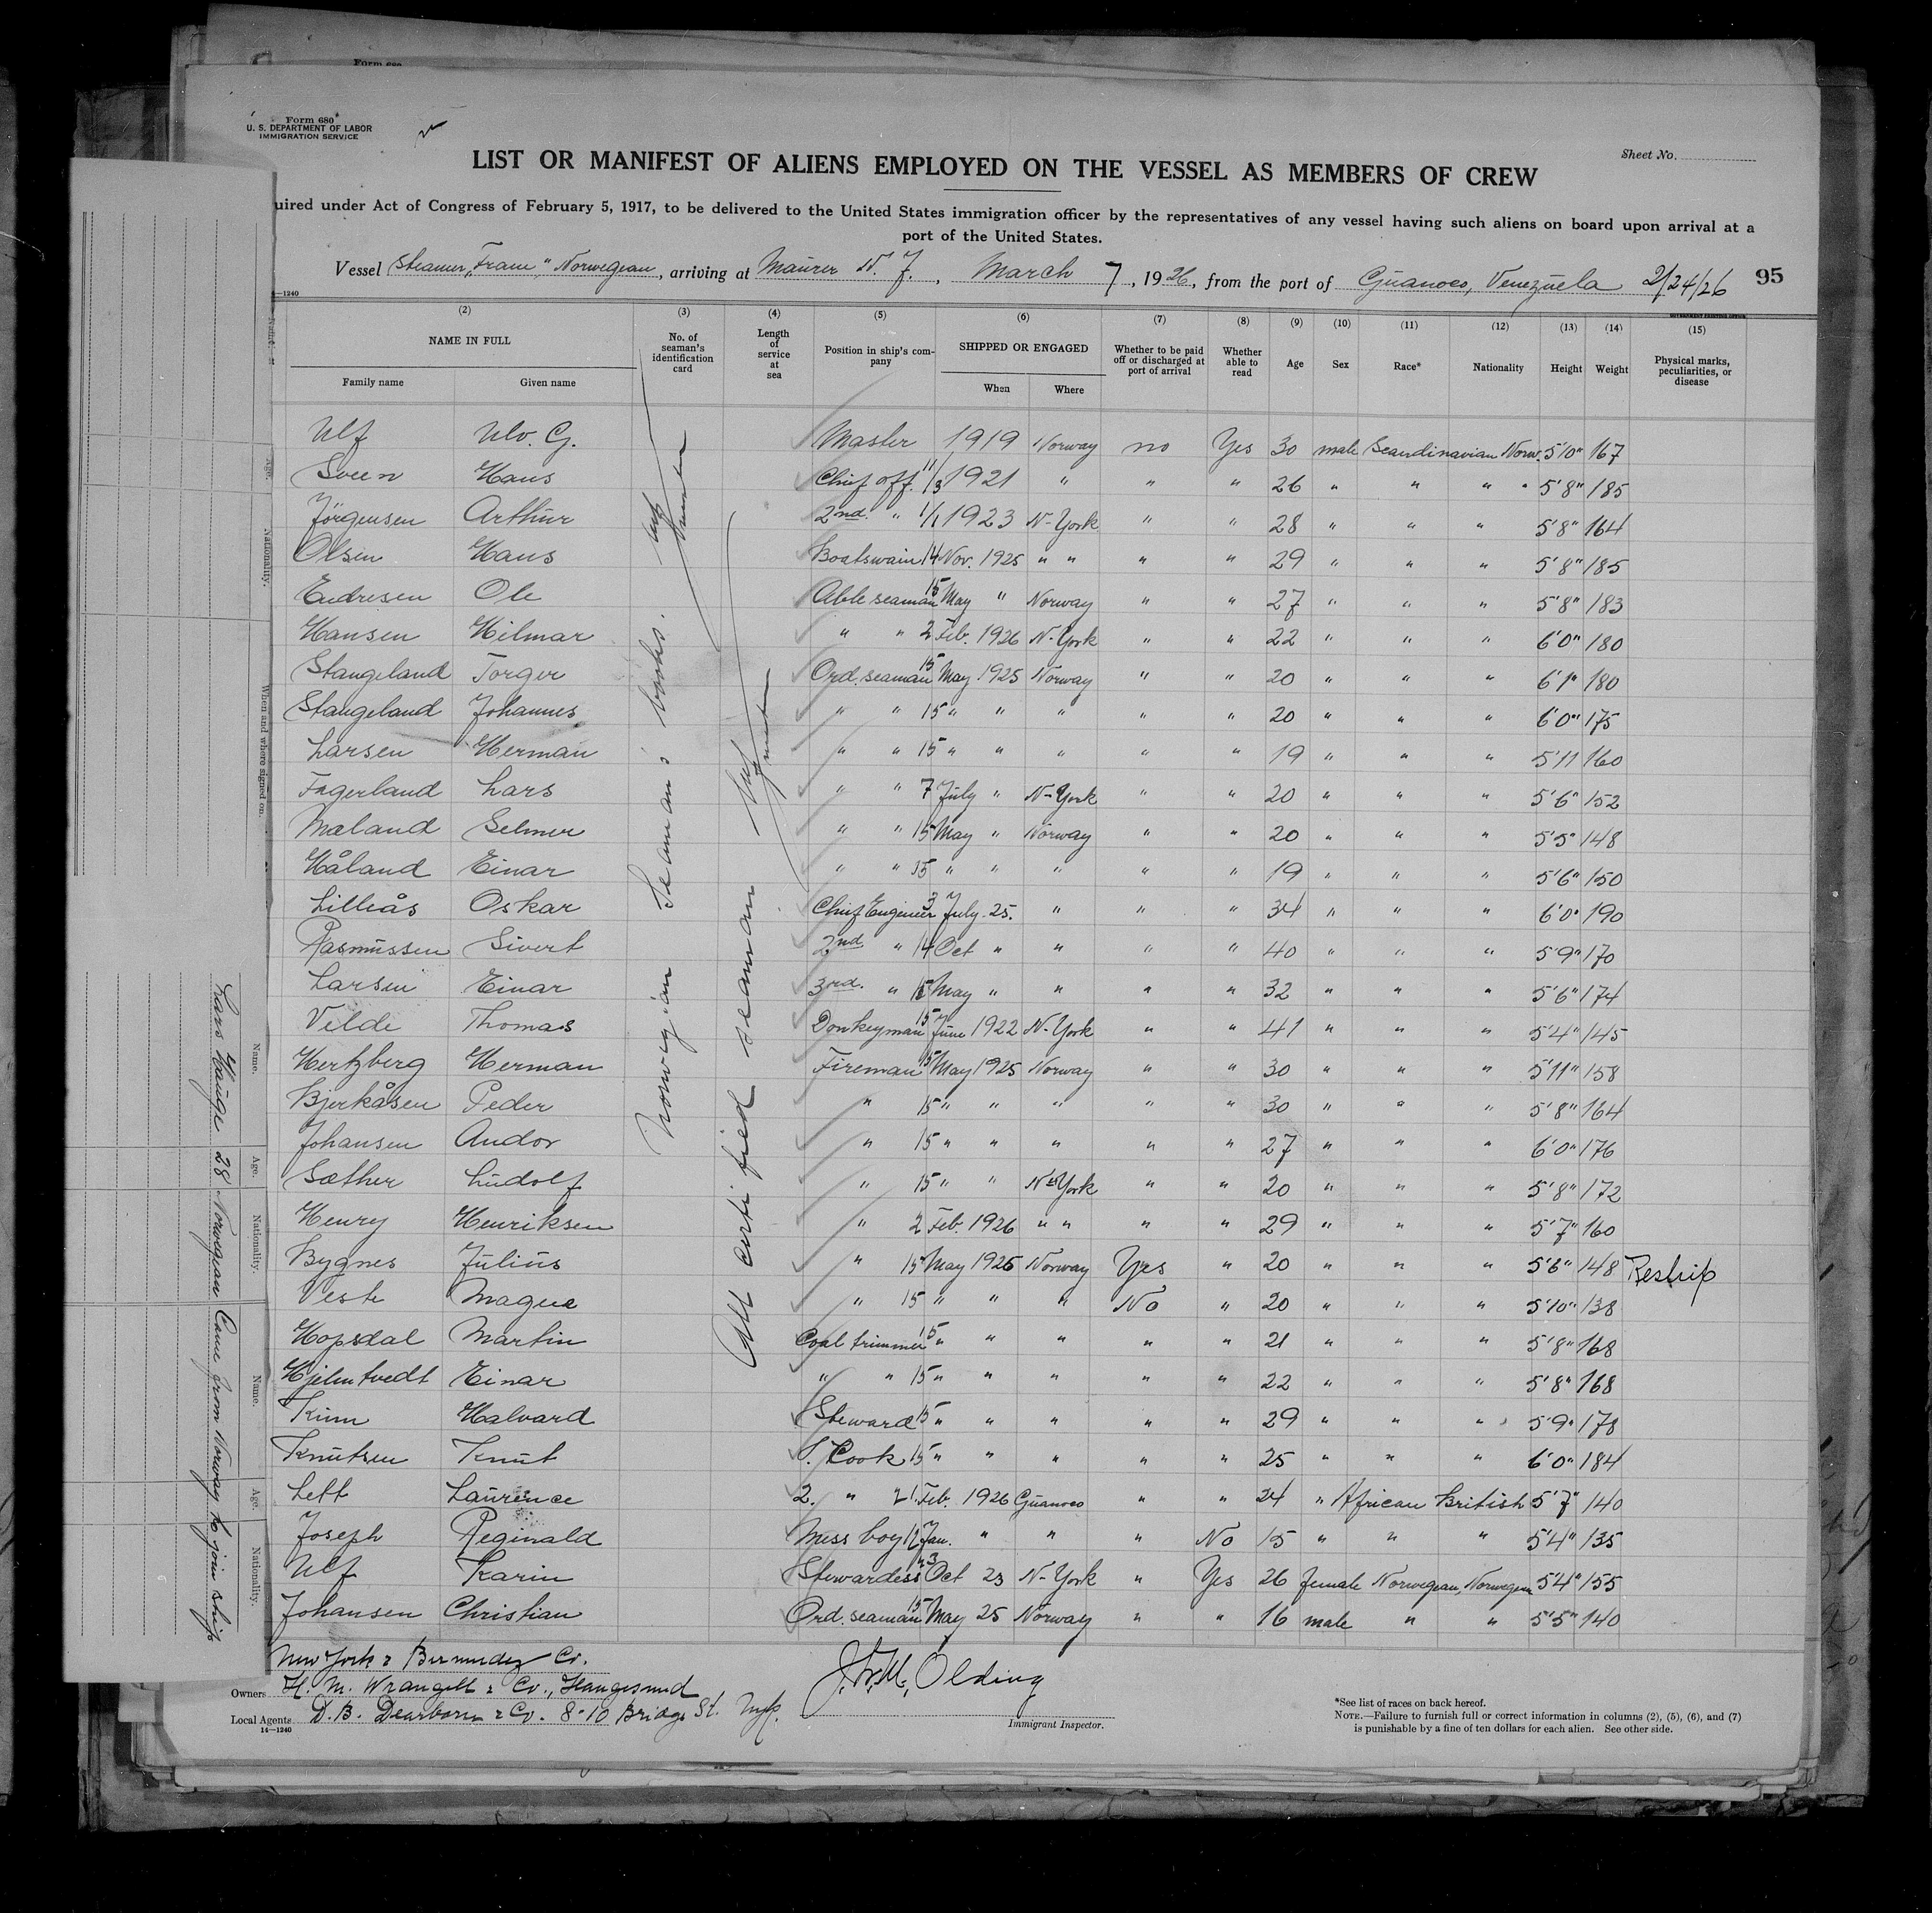 Form 680
Form 680
U. S. DEPARTMENT OF LABOR
IMMIGRATION SERVICE
Sheet No.
LIST OR MANIFEST OF ALIENS EMPLOYED ON THE VESSEL AS MEMBERS OF CREW
uired under Act of Congress of February 5, 1917, to be delivered to the United States immigration officer by the representatives of any vessel having such aliens on board upon arrival at a
port of the United States.
Vessel Steamer "Fram" Norwegian, arriving at Maurer N. J., March 7, 1926, from the port of Guanoco, Venezuela 2/24/26 95
—1240
(2) (3) (4) (5) (6) (7) (8) (9) (10) (11) (12) (13) (14) (15)
NAME IN FULL No. of seaman's identification card Length of service at sea Position in ship's company SHIPPED OR ENGAGED Whether to be paid off or discharged at port of arrival Whether able to read Age Sex Race* Nationality Height Weight Physical marks, peculiarities, or disease
Family name Given name When Where
Ulf Ulv. G. Master 1919 Norway no Yes 30 male Scandinavian Norw. 5'10" 167
Sveen Hans Chief off. 11/3 1921 " " " 26 " " " 5'8" 185
Jörgensen Arthur 2nd. " 1/1 1923 N-York " " 28 " " " 5'8" 164
Olsen Hans Boatswain 14 Nov. 1925 " " " " 29 " " " 5'8" 185
Endresen Ole Able seaman 15 May " Norway " " 27 " " " 5'8" 183
Hansen Hilmar " " 2 Feb. 1926 N-York " " 22 " " " 6'0" 180
Stangeland Torger Ord. seaman 15 May 1925 Norway " " 20 " " " 6'1" 180
Stangeland Johannes " " 15 " " " " " 20 " " " 6'0" 175
Larsen Herman " " 15 " " " " " 19 " " " 5'11 160
Fagerland Lars " " 7 July " N-York " " 20 " " " 5'6" 152
Mæland Selmer " " 15 May " Norway " " 20 " " " 5'5" 148
Håland Einar " " 15 " " " " " 19 " " " 5'6" 150
Lilleås Oskar Chief Engineer 3 July 25. " " " 34 " " " 6'0" 190
Rasmussen Sivert 2nd " 14 Oct " " " " 40 " " " 5'9" 170
Larsen Einar 3rd. " 15 May " " " " 32 " " " 5'6" 174
Velde Thomas Donkeyman 15 June 1922 N-York " " 41 " " " 5'4" 145
Hertzberg Herman Fireman 15 May 1925 Norway " " 30 " " " 5'11" 158
Bjerkåsen Peder " 15 " " " " " 30 " " " 5'8" 164
Johansen Andor " 15 " " " " " 27 " " " 6'0" 176
Sæther Ludolf " 15 " " N-York " " 20 " " " 5'8" 172
Henry Henriksen " 2 Feb. 1926 " " " " 29 " " " 5'7" 160
Bygnes Julius " 15 May 1925 Norway Yes " 20 " " " 5'6" 148
Veste Magne " 15 " " " No " 20 " " " 5'10" 138
Hopsdal Martin Coal trimmer 15 " " " " " 21 " " " 5'8" 168
Hjelmtvedt Einar " " 15 " " " " " 22 " " " 5'8" 168
Kinn Halvard Steward 15 " " " " " 29 " " " 5'9" 178
Knutsen Knut 1. Cook 15 " " " " " 25 " " " 6'0" 184
Lett Laurence 2. " 21. Feb. 1926 Guanoco " " 24 " African British 5'7" 140
Joseph Reginald Mess boy 12 Jan. " " " No 15 " " " 5'4" 135
Ulf Karin Stewardess Oct 23 N-York " Yes 26 female Norwegian Norwegian 5'4" 155
Johansen Christian Ord. seaman 15 May 25 Norway " " 16 male " " 5'5" 140
Norwegian Seaman's books. Ulf master
All certified seaman Ulf master
New York & Bermudez Co.
Owners H. M. Wrangell & Co., Haugesund
Local Agents D. B. Dearborn & Co. 8-10 Bridge St. NYK.
14—1240
J. W. M. Olding
Immigrant Inspector.
*See list of races on back hereof.
NOTE.—Failure to furnish full or correct information in columns (2), (5), (6), and (7)
is punishable by a fine of ten dollars for each alien. See other side.
Age. Nationality. When and where signed on.
Name. Age. Nationality. Name. Age. Nationality.
Lars Hauge 28 Norwegian Came from Norway to join ship